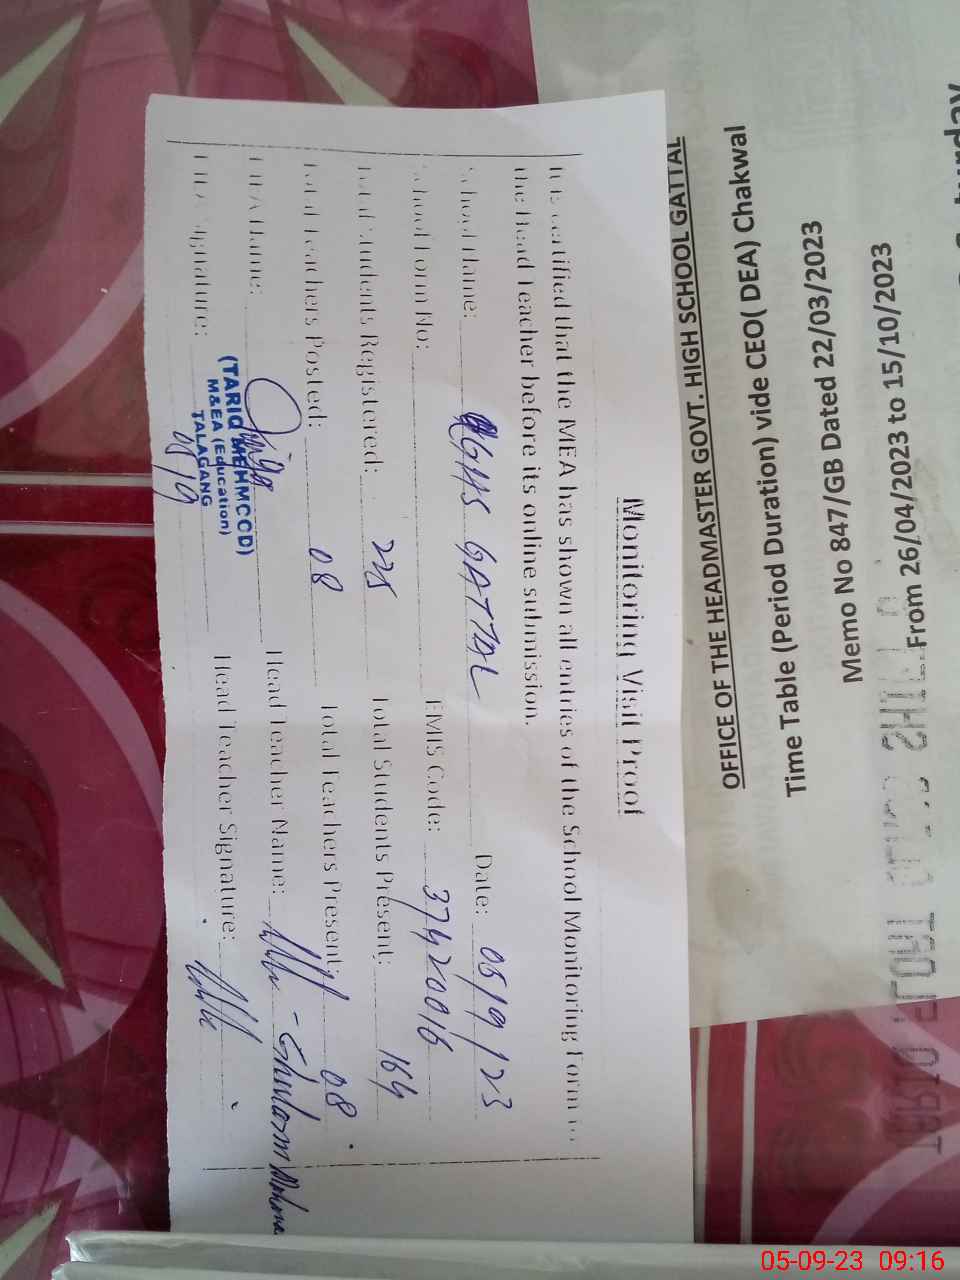 Monitoring Visit Proof
It is certified that the MEA has shown all entries of the School Monitoring Form to
the Head Teacher before its online submission.
School Name: GHS GATTAL Date: 05/9/23
School Form No: EMIS Code: 37420016
Total Students Registered: 225 Total Students Present: 164
Total Teachers Posted: 08 Total Teachers Present: 08
MEA Name: Head Teacher Name: Ghulam
MEA Signature: Head Teacher Signature:
(TARIQ MEHMCCD)
M&EA (Education)
TALAGANG
05/9
OFFICE OF THE HEADMASTER GOVT. HIGH SCHOOL GATTAL
Time Table (Period Duration) vide CEO( DEA) Chakwal
Memo No 847/GB Dated 22/03/2023
From 26/04/2023 to 15/10/2023
05-09-23 09:16